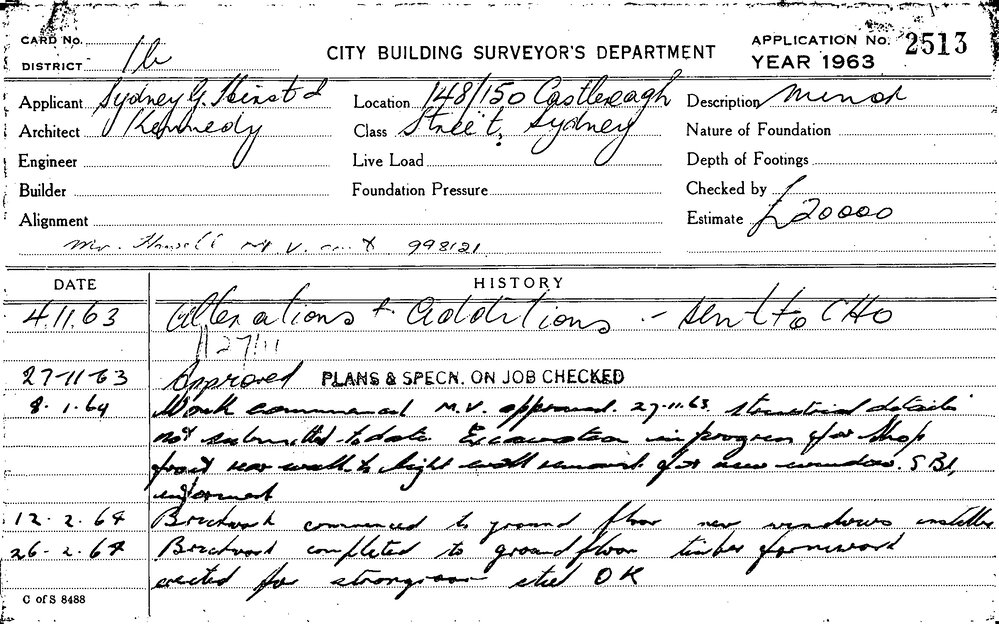 CARD No.
DISTRICT 1b
CITY BUILDING SURVEYOR'S DEPARTMENT
APPLICATION No. 2513
YEAR 1963
Applicant Sydney G. Hirst &
Architect Kennedy
Engineer
Builder
Alignment
Location 148/150 Castlereagh
Class Street, Sydney
Live Load
Foundation Pressure
Description Minor
Nature of Foundation
Depth of Footings
Checked by
Estimate £20000
Mr. 998121
DATE HISTORY
4.11.63 Alterations & Additions - sent to CHO
27/11
27-11-63 Approved PLANS & SPECN. ON JOB CHECKED
8.1.64 Work commenced M.V. approved. 27.11.63. structural details
not submitted to date. Excavation in progress for shop
front rear wall to light well removed for new window. SBI,
informed
12.2.64 Brickwork commenced to ground floor new windows installed
26.2.64 Brickwork completed to ground floor timber formwork
erected for strongroom steel OK
C of S 8488